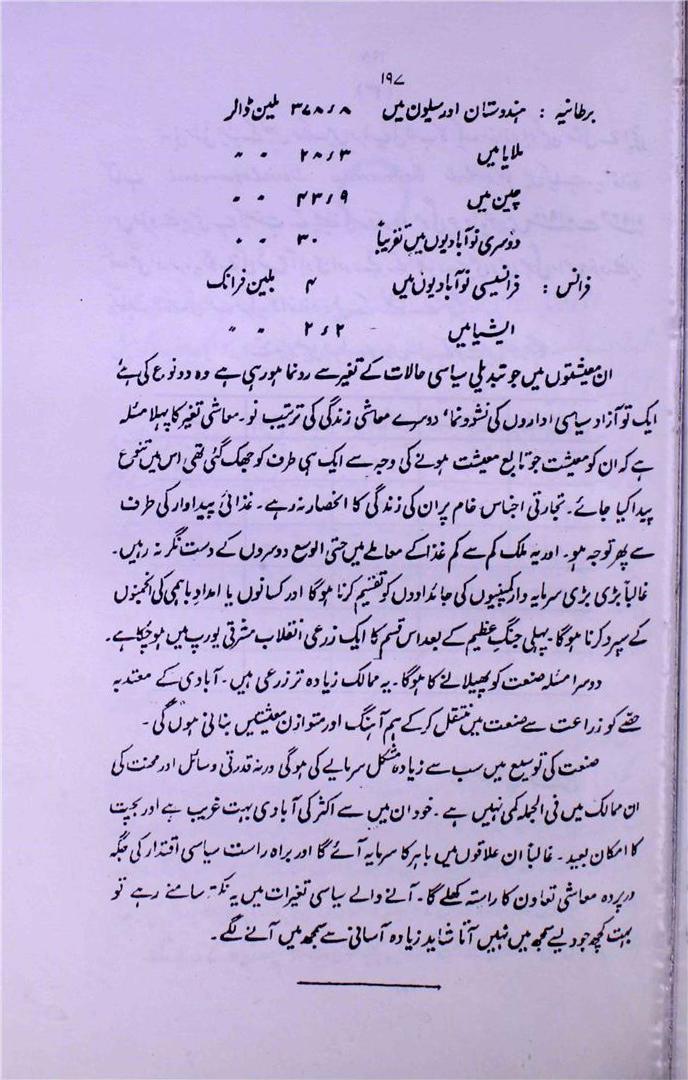 ۱۹۷
برطانیہ : ہندوستان اور سیلون میں ۳۷۸ء۸ بلین ڈالر
ملایا میں ۲۸ء۳ " "
چین میں ۴۳ء۹ " "
دوسری نوآبادیوں میں تقریباً ۳۰ " "
فرانس : فرانسیسی نوآبادیوں میں ۴ بلین فرانک
ایشیا میں ۲ء۲ " "
ان معیشتوں میں جو تبدیلی سیاسی حالات کے تغیر سے رونما ہو رہی ہے وہ دو نوع کی ہے
ایک تو آزاد سیاسی اداروں کی نشوونما، دوسرے معاشی زندگی کی ترتیب نو۔ معاشی تغیر کا پہلا مسئلہ
ہے کہ ان کو معیشت جو تابع معیشت ہونے کی وجہ سے ایک ہی طرف کو جھک گئی تھی اس میں تنوع
پیدا کیا جائے۔ تجارتی اجناس خام پر ان کی زندگی کا انحصار نہ رہے۔ غذائی پیداوار کی طرف
سے پھر توجہ ہو۔ اور یہ ملک کم سے کم غذا کے معاملے میں حتی الوسع دوسروں کے دست نگر نہ رہیں۔
غالباً بڑی بڑی سرمایہ دار کمپنیوں کی جائدادوں کو تقسیم کرنا ہوگا اور کسانوں یا امداد باہمی کی انجمنوں
کے سپرد کرنا ہوگا۔ پہلی جنگ عظیم کے بعد اس قسم کا ایک زرعی انقلاب مشرقی یورپ میں ہو چکا ہے۔
دوسرا مسئلہ صنعت کو پھیلانے کا ہوگا۔ یہ ممالک زیادہ تر زرعی ہیں۔ آبادی کے معتدبہ
حصّے کو زراعت سے صنعت میں منتقل کر کے ہم آہنگ اور متوازن معیشتیں بنانی ہوں گی۔
صنعت کی توسیع میں سب سے زیادہ مشکل سرمایے کی ہوگی ورنہ قدرتی وسائل اور محنت کی
ان ممالک میں فی الجملہ کمی نہیں ہے۔ خود ان میں سے اکثر کی آبادی بہت غریب ہے اور بچت
کا امکان بعید۔ غالباً ان علاقوں میں باہر کا سرمایہ آئے گا اور براہ راست سیاسی اقتدار کی جگہ
درپردہ معاشی تعاون کا راستہ کھلے گا۔ آنے والے سیاسی تغیرات میں یہ نکتہ سامنے رہے تو
بہت کچھ جو ویسے سمجھ میں نہیں آتا شاید زیادہ آسانی سے سمجھ میں آنے لگے۔